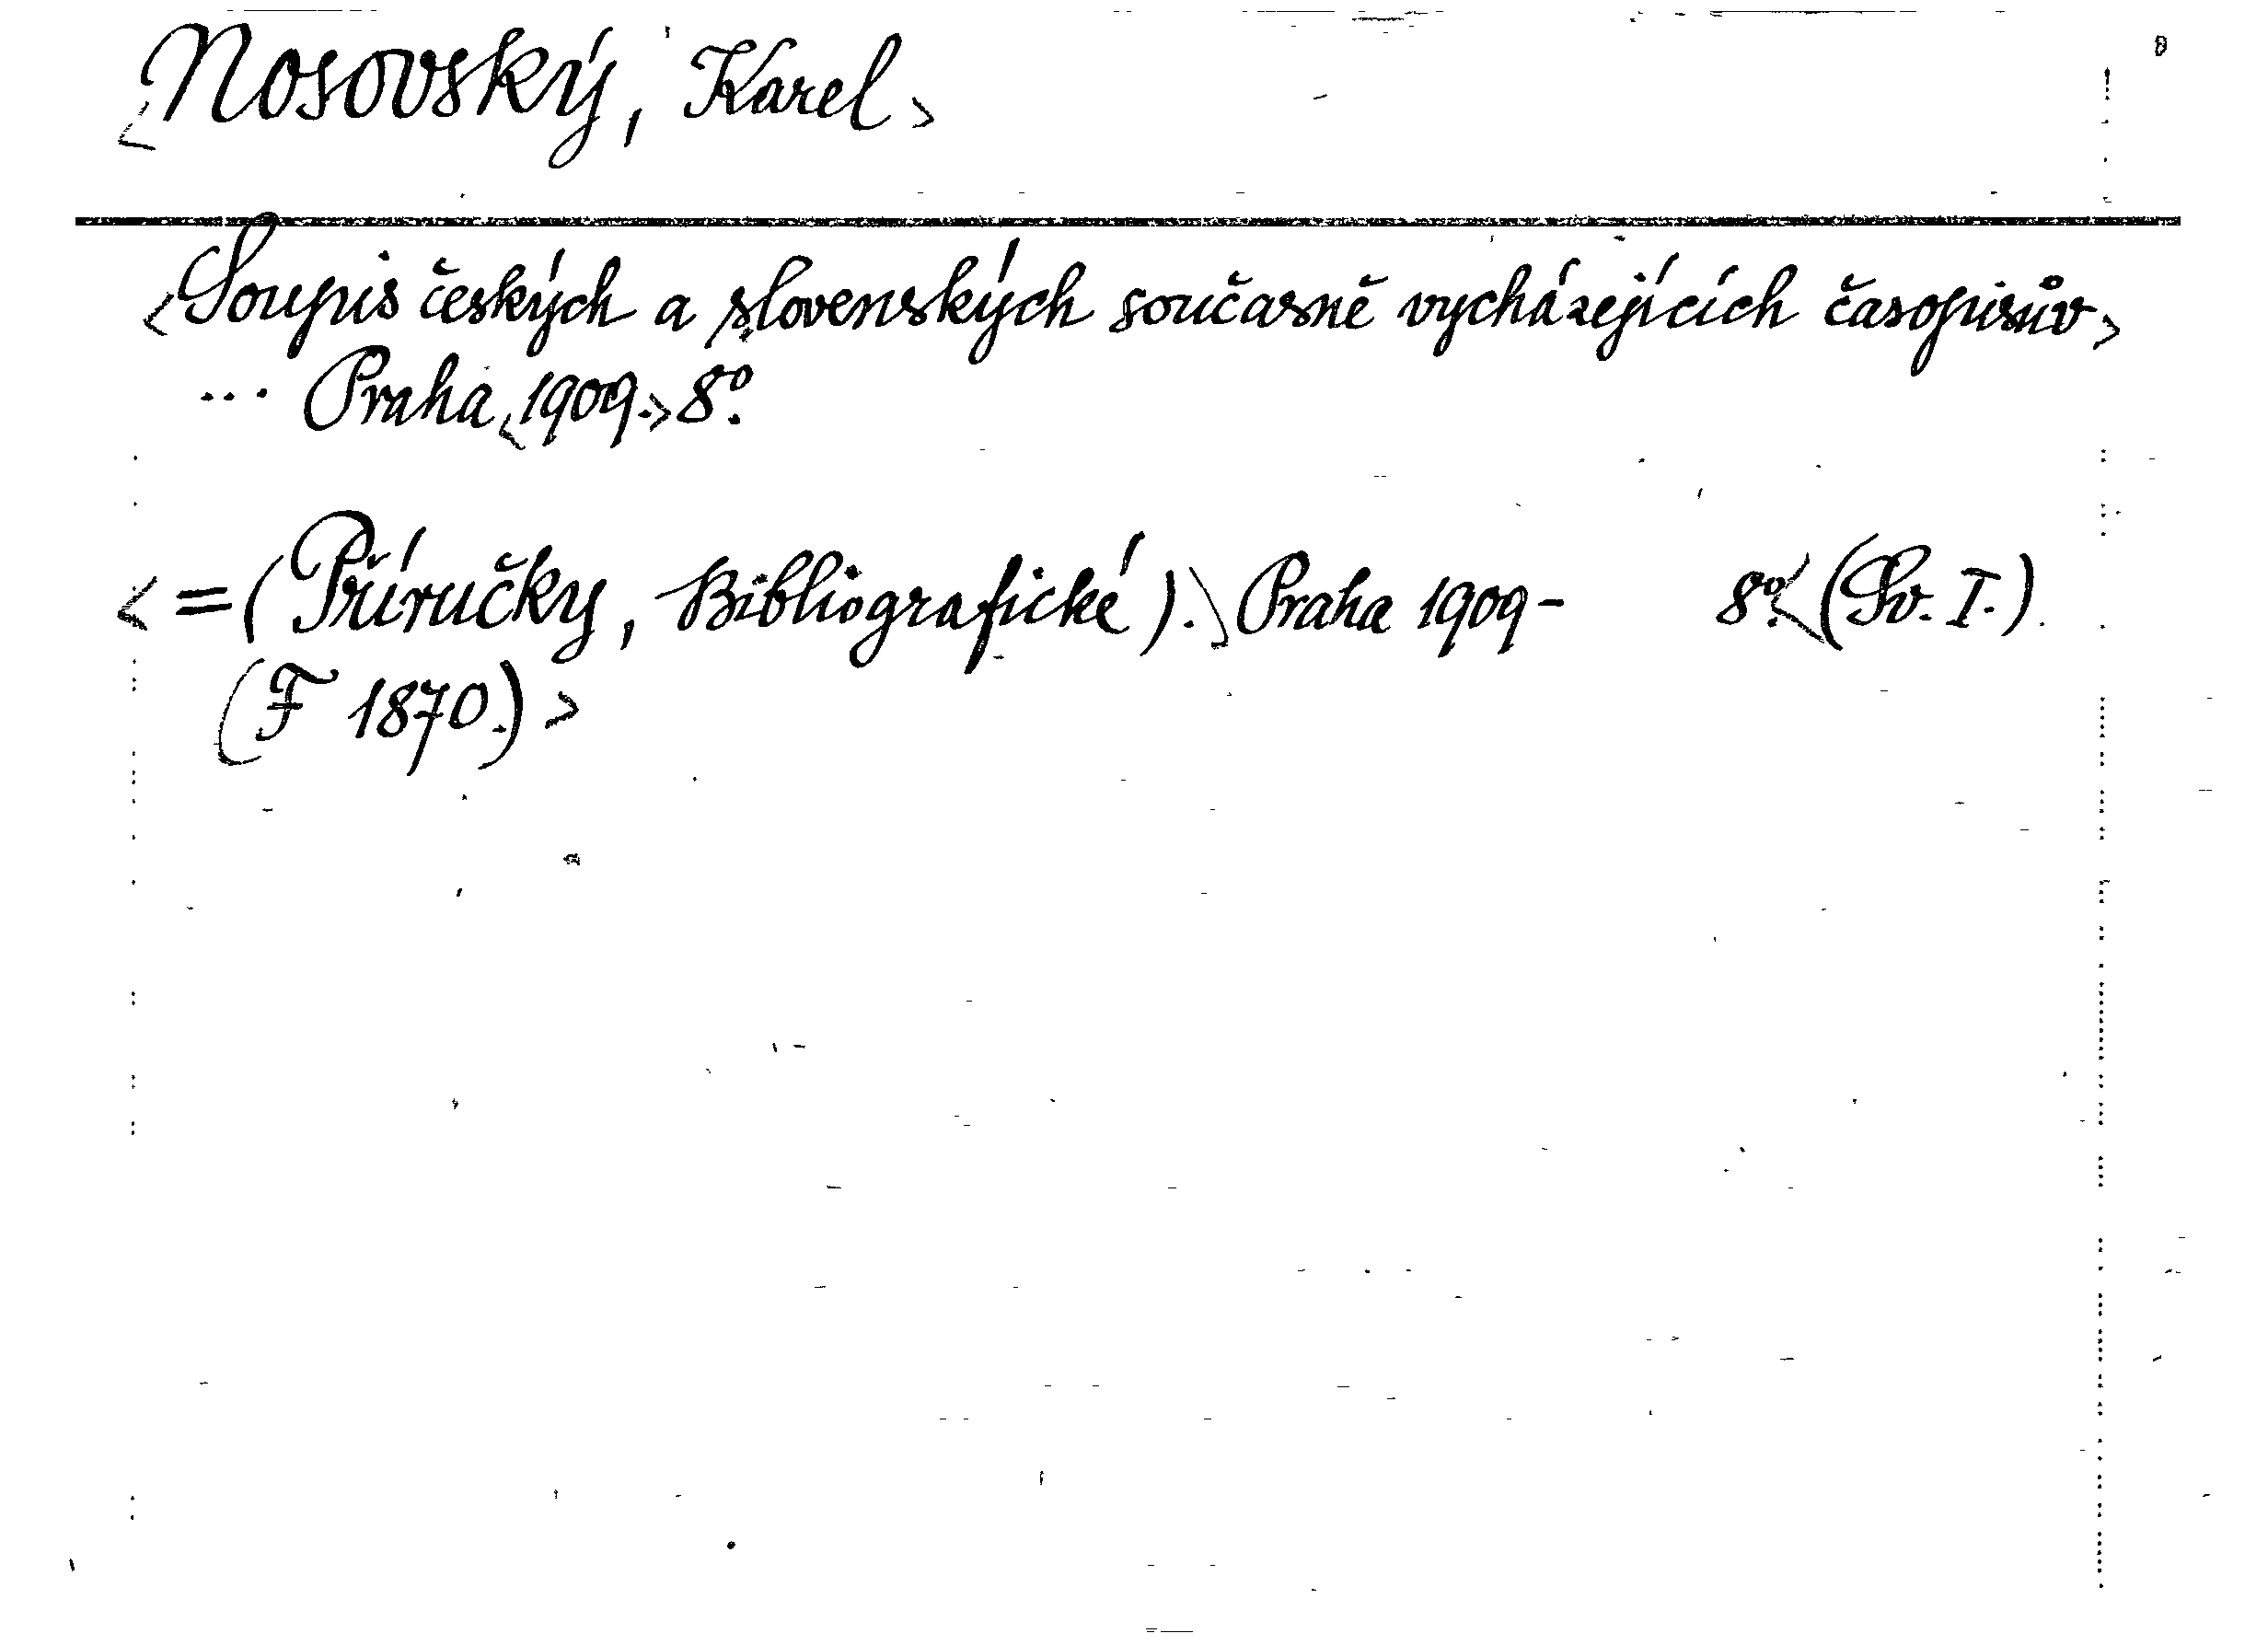 <Nosovský, Karel>
<Soupis českých a slovenských současně vycházejících časopisův>
... Praha <1909.> 8º.
<=(Příručky, Bibliografické).> Praha 1909- 8º.<(Sv. I.)
(F 1870.)>